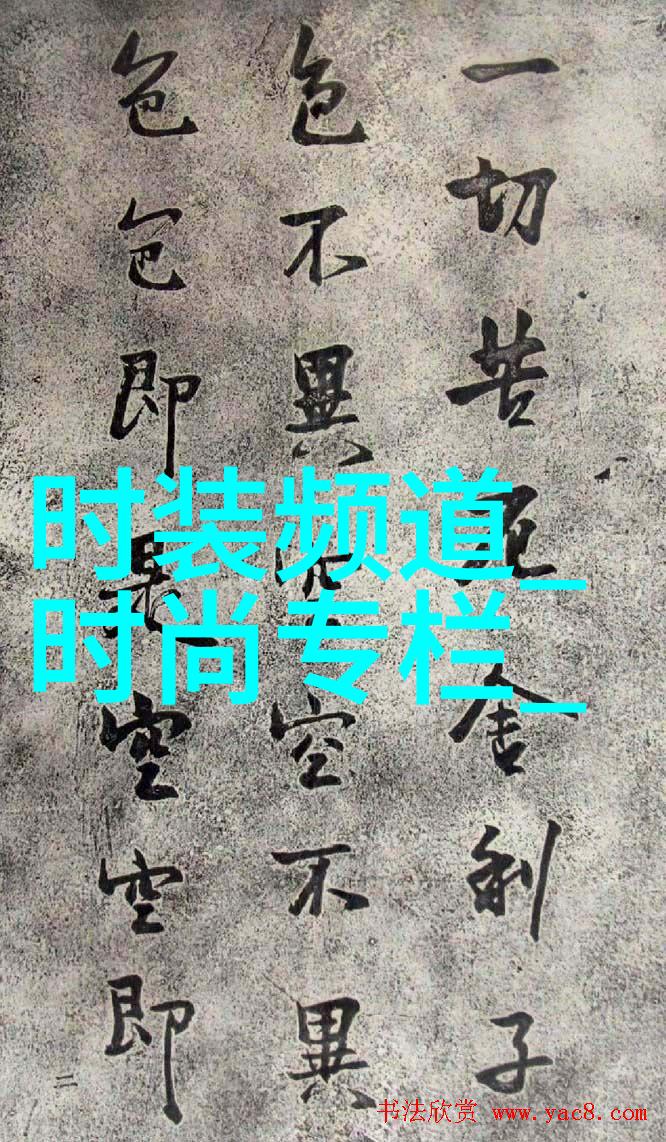 一切苦厄舍利子
色不異空空不異
色色即是空空即
二
时装频道_
时尚专栏_
书法欣赏 www.yac8.com